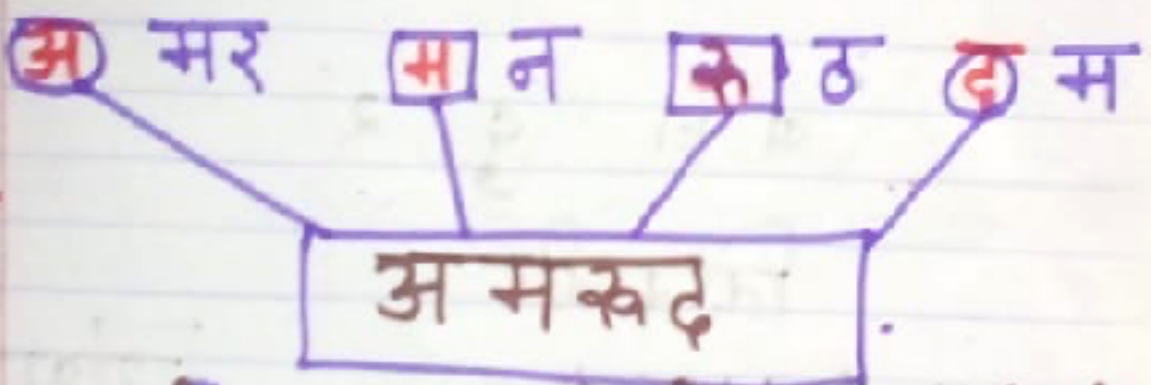 अमर मन रूठ दम
अमरूद